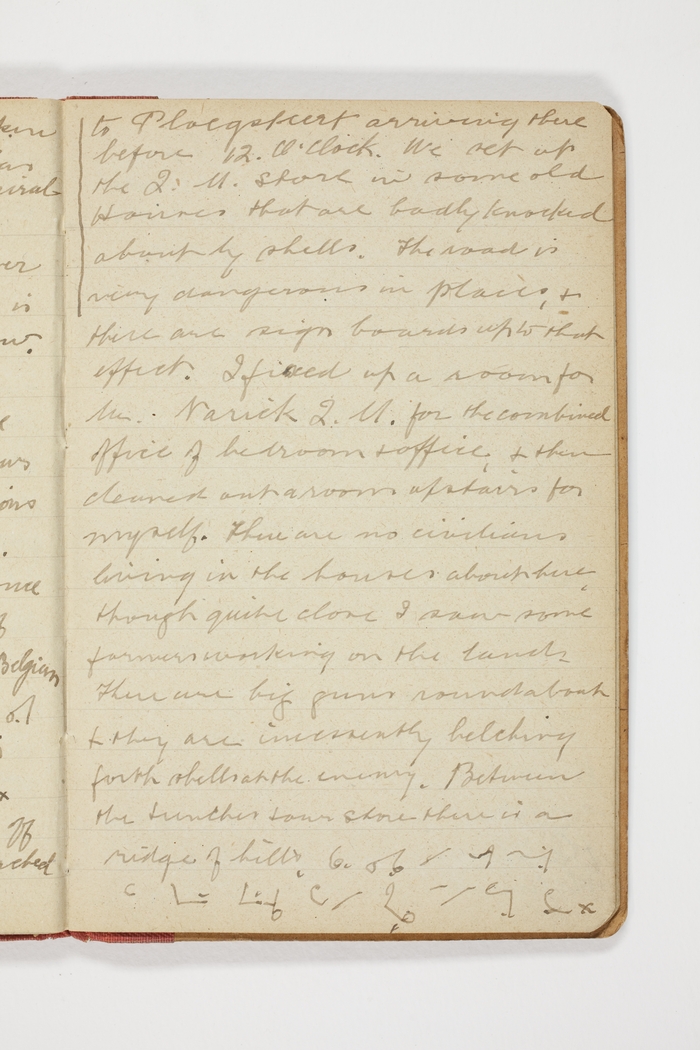 to Ploegsteert arriving there
before 12. O'Clock. We set up
the Q. M. Store in some old
Houses that are badly knocked
about by shells. The road is
very dangerous in places, +
there are sign boards up to that
effect. I fixed up a room for
Lu. Narick Q. M. for the combined
office of bedroom + office, + then
cleaned out a room upstairs for
myself. There are no civilians
living in the houses about here,
though quite close I saw some
farmers working on the land.
There are big guns round about
+ they are incessantly belching
forth shells at the enemy. Between
the trenches + our store there is a
ridge of hills,
ken
iral
er
is
w.
urs
ons
nce
Belgian
of
x
off
ached